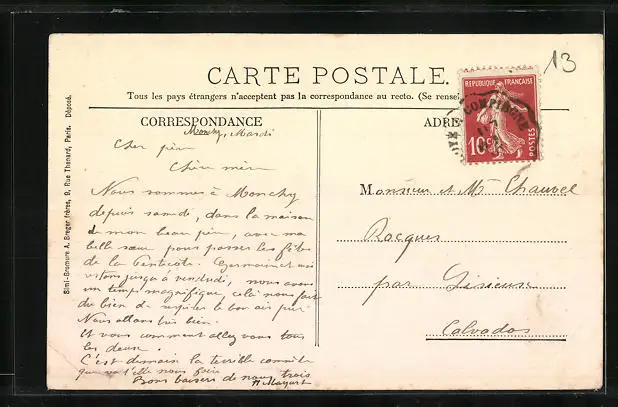 13
CARTE POSTALE.
Tous les pays étrangers n'acceptent pas la correspondance au recto. (Se rensei
REPUBLIQUE FRANÇAISE
10
POSTES
COMPIEGNE
CORRESPONDANCE
ADRE
Monchy, Mardi
Cher père
Chère mère
Nous sommes à Monchy
depuis samedi, dans la maison
de mon beau père, avec ma
belle sœur pour passer les fêtes
de la Pentecôte. Germaine et moi
restons jusqu'à vendredi, nous avons
un temps magnifique, cela nous fait
du bien de respirer le bon air pur
Nous allons très bien.
Et vous comment allez vous tous
les deux.
C'est demain la terrible comète
que va t'elle nous faire
Bons baisers de nous trois
Monsieur et Me Chauvel
Rocques
par Lisieux
Calvados
Simi-Bromure A. Breger frères, 9, Rue Thenard, Paris. Déposé.